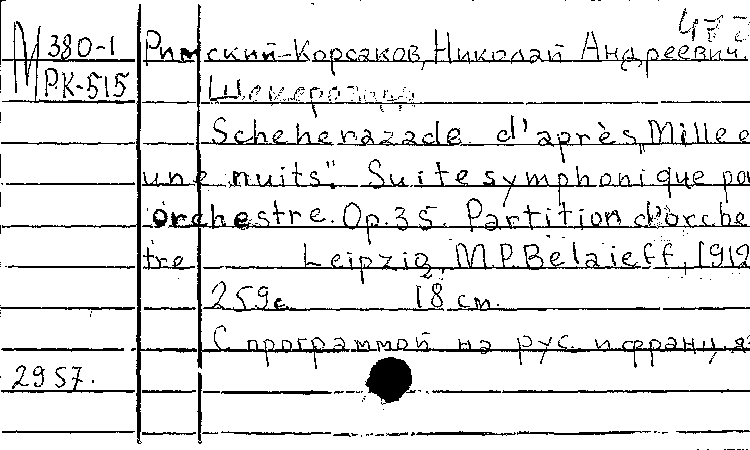 472
М 380-1 Римский-Корсаков, Николай Андреевич.
РК-515 Шехеразада
Scheherazade d'après „Mille e
une nuits". Suite symphonique po
orchestre. Op. 35. Partition d'orche
tre Leipzig, M.P. Belaieff, 1912
259 с. 18 см.
С программой на рус. и франц. яз
2957.